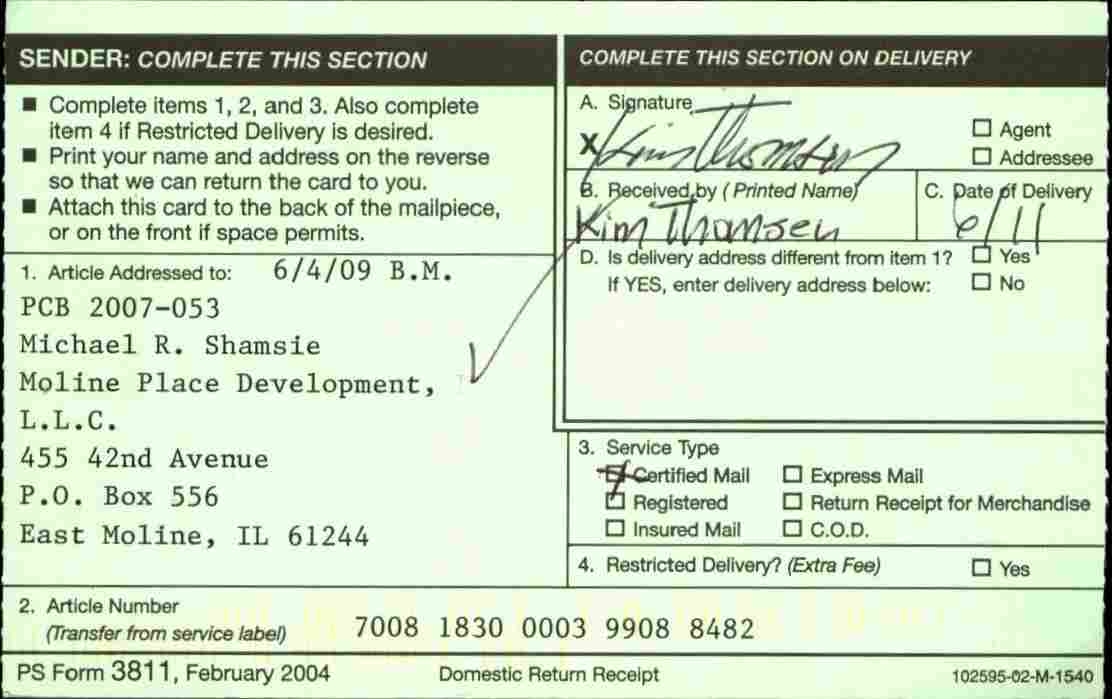 SENDER: COMPLETE THIS SECTION
■ Complete items 1, 2, and 3. Also complete
item 4 if Restricted Delivery is desired.
■ Print your name and address on the reverse
so that we can return the card to you.
■ Attach this card to the back of the mailpiece,
or on the front if space permits.
1. Article Addressed to: 6/4/09 B.M.
PCB 2007-053
Michael R. Shamsie
Moline Place Development,
L.L.C.
455 42nd Avenue
P.O. Box 556
East Moline, IL 61244
COMPLETE THIS SECTION ON DELIVERY
A. Signature
X Kim Thomsen
☐ Agent
☐ Addressee
B. Received by (Printed Name)
Kim Thomsen
C. Date of Delivery
6/11
D. Is delivery address different from item 1? ☐ Yes
If YES, enter delivery address below: ☐ No
3. Service Type
☒ Certified Mail ☐ Express Mail
☐ Registered ☐ Return Receipt for Merchandise
☐ Insured Mail ☐ C.O.D.
4. Restricted Delivery? (Extra Fee) ☐ Yes
2. Article Number
(Transfer from service label) 7008 1830 0003 9908 8482
PS Form 3811, February 2004 Domestic Return Receipt 102595-02-M-1540